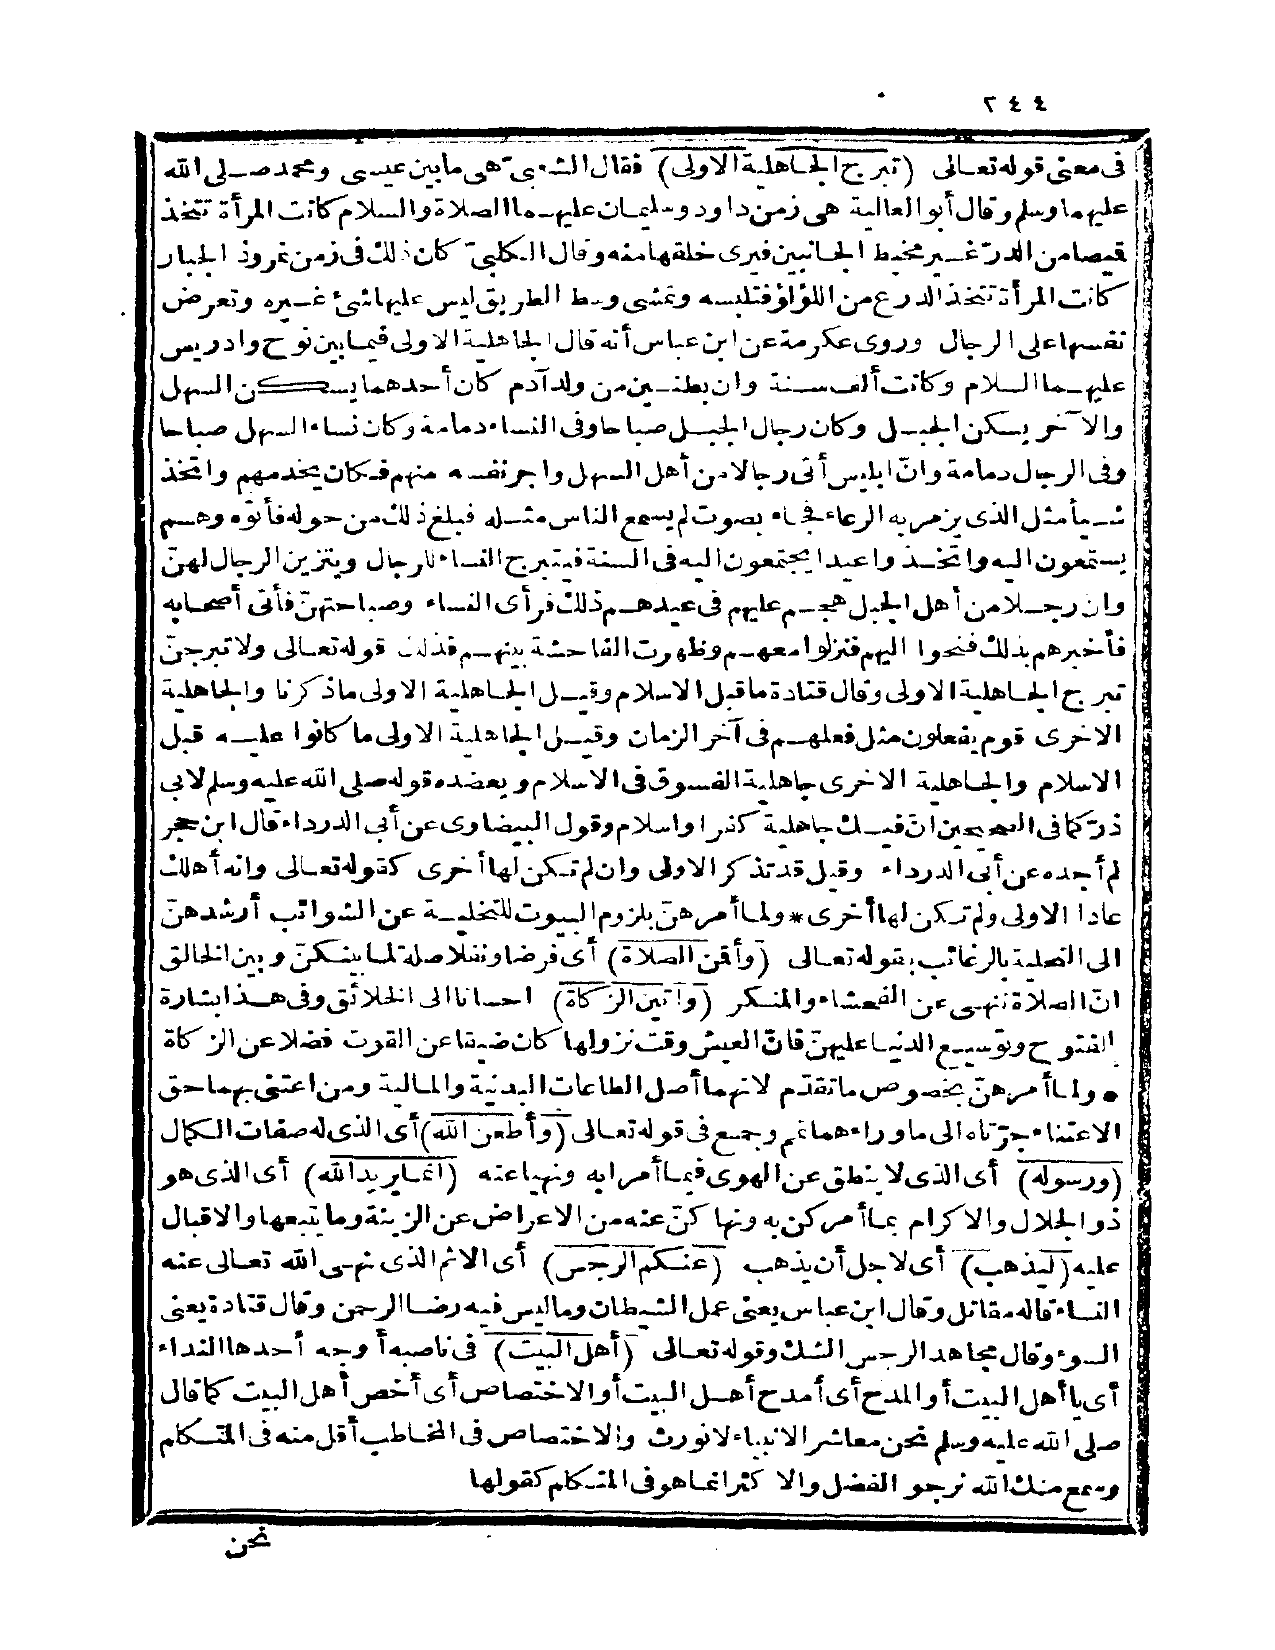 ٢٤٤
فى معنى قوله تعالى (تبرج الجاهلية الاولى) فقال الشعبى هى ما بين عيسى ومحمد صلى الله
عليهما وسلم وقال أبو العالية هى زمن داود وسليمان عليهما الصلاة والسلام كانت المرأة تتخذ
قيصا من الدرّ غير مخيط الجانبين فيرى خلقها منه وقال الكلبىّ كان ذلك فى زمن نمروذ الجبار
كانت المرأة تتخذ الدرع من اللؤلؤ فتلبسه وتمشى وسط الطريق ليس عليها شئ غيره وتعرض
نفسها على الرجال وروى عكرمة عن ابن عباس أنه قال الجاهلية الاولى فيما بين نوح وادريس
عليهما السلام وكانت ألف سنة وان بطنين من ولد آدم كان أحدهما يسكن السهل
والآخر يسكن الجبل وكان رجال الجبل صباحا وفى النساء دمامة وكان نساء السهل صباحا
وفى الرجال دمامة وانّ ابليس أتى رجالا من أهل السهل واجر نفسه منهم فكان يخدمهم واتخذ
شيأ مثل الذى يزمر به الرعاء فجاء بصوت لم يسمع الناس مثله فبلغ ذلك من حوله فأتوه وهم
يستمعون اليه واتخذوا عيدا يجتمعون اليه فى السنة فيتبرج النساء للرجال ويتزين الرجال لهنّ
وان رجلا من أهل الجبل هجم عليهم فى عيدهم ذلك فرأى النساء وصباحتهنّ فأتى أصحابه
فأخبرهم بذلك فتحوا اليهم فنزلوا معهم وظهرت الفاحشة بينهم فذلك قوله تعالى ولا تبرجن
تبرج الجاهلية الاولى وقال قتادة ما قبل الاسلام وقيل الجاهلية الاولى ما ذكرنا والجاهلية
الاخرى قوم يفعلون مثل فعلهم فى آخر الزمان وقيل الجاهلية الاولى ما كانوا عليه قبل
الاسلام والجاهلية الاخرى جاهلية الفسوق فى الاسلام ويعضده قوله صلى الله عليه وسلم لابى
ذرّ كما فى الصحيحين انّ فيك جاهلية كفر او اسلام وقول البيضاوى عن أبى الدرداء قال ابن حجر
لم أجده عن أبى الدرداء وقيل قد تذكر الاولى وان لم تكن لها أخرى كقوله تعالى وانه أهلك
عادا الاولى ولم تكن لها أخرى * ولما أمرهنّ بلزوم البيوت للتخلية عن الشوائب أرشدهنّ
الى التحلية بالرغائب بقوله تعالى (وأقمن الصلاة) أى فرضا ونفلا صلة لما بينكنّ وبين الخالق
انّ الصلاة تنهى عن الفحشاء والمنكر (وآتين الزكاة) احسانا الى الخلائق وفى هذا بشارة
الفتوح وتوسيع الدنيا عليهنّ فانّ العيش وقت نزولها كان ضيقا عن القوت فضلا عن الزكاة
* ولما أمرهنّ بخصوص ما تقدّم لانهما أصل الطاعات البدنية والمالية ومن اعتنى بهما حق
الاعتناء جرّتاه الى ما وراءهما عمّ وجمع فى قوله تعالى (وأطعن الله) أى الذى له صفات الكمال
(ورسوله) أى الذى لا ينطق عن الهوى فيما أمرا به ونهيا عنه (انما يريد الله) أى الذى هو
ذو الجلال والاكرام بما أمركن به ونها كنّ عنه من الاعراض عن الزينة وما يتبعها والاقبال
عليه (ليذهب) أى لاجل أن يذهب (عنكم الرجس) أى الاثم الذى نهى الله تعالى عنه
النساء قاله مقاتل وقال ابن عباس يعنى عمل الشيطان وما ليس فيه رضا الرحمن وقال قتادة يعنى
السوء وقال مجاهد الرجس الشك وقوله تعالى (أهل البيت) فى ناصبه أوجه أحدها النداء
أى يا أهل البيت أو المدح أى أمدح أهل البيت أو الاختصاص أى أخص أهل البيت كما قال
صلى الله عليه وسلم نحن معاشر الانبياء لا نورث والاختصاص فى المخاطب أقل منه فى المتكلم
وسمع منك الله نرجو الفضل والا كثر انما هو فى المتكلم كقولها
نحن